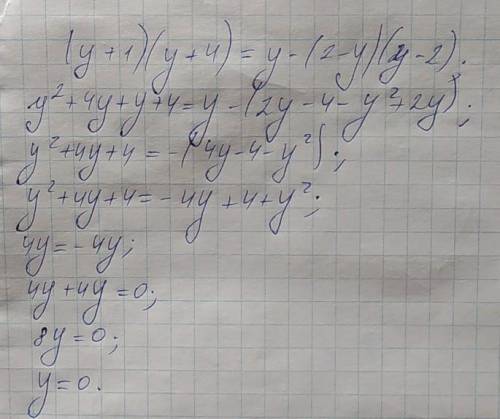 (y+1)(y+4)=y-(2-y)(y-2);
y²+4y+y+4=y-(2y-4-y²+2y);
y²+4y+4=-(4y-4-y²);
y²+4y+4=-4y+4+y²;
4y=-4y;
4y+4y=0;
8y=0;
y=0.